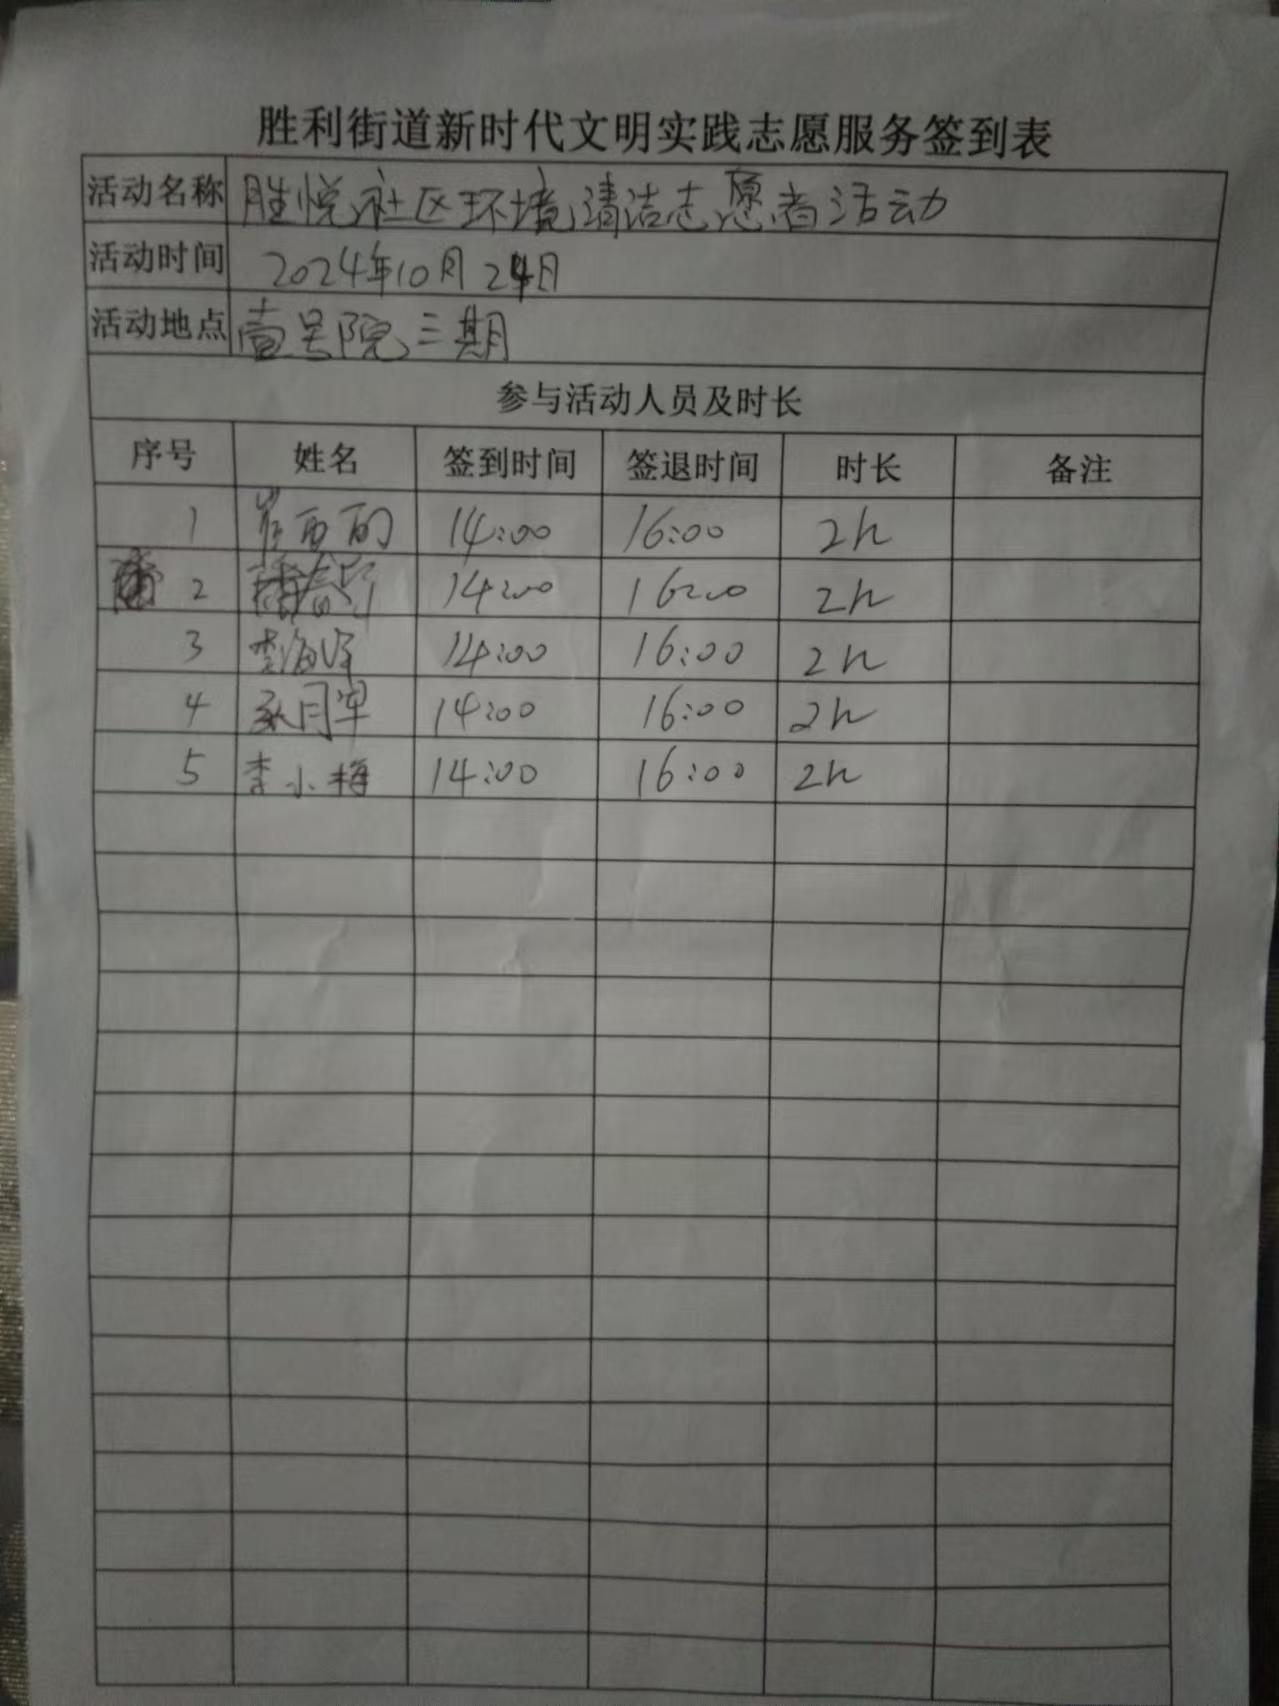 胜利街道新时代文明实践志愿服务签到表
活动名称 胜悦社区环境清洁志愿者活动
活动时间 2024年10月24日
活动地点 壹号院三期
参与活动人员及时长
序号 姓名 签到时间 签退时间 时长 备注
1 14:00 16:00 2h
2 14:00 16:00 2h
3 李海峰 14:00 16:00 2h
4 14:00 16:00 2h
5 李小梅 14:00 16:00 2h